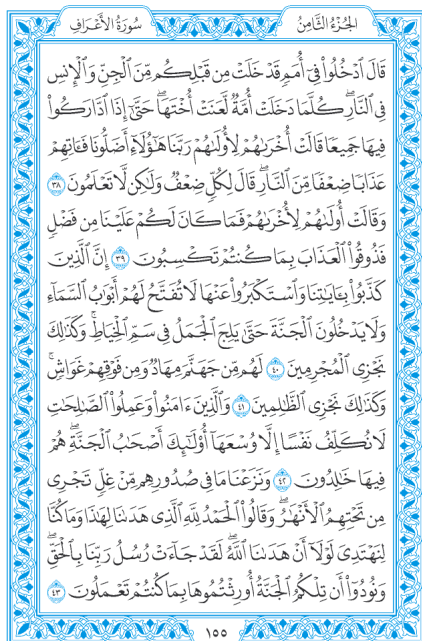 الجُزْءُ الثَّامِنُ
سُورَةُ الأَعْرَافِ
قَالَ ٱدۡخُلُواْ فِيٓ أُمَمٖ قَدۡ خَلَتۡ مِن قَبۡلِكُم مِّنَ ٱلۡجِنِّ وَٱلۡإِنسِ
فِي ٱلنَّارِۖ كُلَّمَا دَخَلَتۡ أُمَّةٞ لَّعَنَتۡ أُخۡتَهَاۖ حَتَّىٰٓ إِذَا ٱدَّارَكُواْ
فِيهَا جَمِيعٗا قَالَتۡ أُخۡرَىٰهُمۡ لِأُولَىٰهُمۡ رَبَّنَا هَٰٓؤُلَآءِ أَضَلُّونَا فَـَٔاتِهِمۡ
عَذَابٗا ضِعۡفٗا مِّنَ ٱلنَّارِۖ قَالَ لِكُلّٖ ضِعۡفٞ وَلَٰكِن لَّا تَعۡلَمُونَ ٣٨
وَقَالَتۡ أُولَىٰهُمۡ لِأُخۡرَىٰهُمۡ فَمَا كَانَ لَكُمۡ عَلَيۡنَا مِن فَضۡلٖ
فَذُوقُواْ ٱلۡعَذَابَ بِمَا كُنتُمۡ تَكۡسِبُونَ ٣٩ إِنَّ ٱلَّذِينَ
كَذَّبُواْ بِـَٔايَٰتِنَا وَٱسۡتَكۡبَرُواْ عَنۡهَا لَا تُفَتَّحُ لَهُمۡ أَبۡوَٰبُ ٱلسَّمَآءِ
وَلَا يَدۡخُلُونَ ٱلۡجَنَّةَ حَتَّىٰ يَلِجَ ٱلۡجَمَلُ فِي سَمِّ ٱلۡخِيَاطِۚ وَكَذَٰلِكَ
نَجۡزِي ٱلۡمُجۡرِمِينَ ٤٠ لَهُم مِّن جَهَنَّمَ مِهَادٞ وَمِن فَوۡقِهِمۡ غَوَاشٖۚ
وَكَذَٰلِكَ نَجۡزِي ٱلظَّٰلِمِينَ ٤١ وَٱلَّذِينَ ءَامَنُواْ وَعَمِلُواْ ٱلصَّٰلِحَٰتِ
لَا نُكَلِّفُ نَفۡسًا إِلَّا وُسۡعَهَآ أُوْلَٰٓئِكَ أَصۡحَٰبُ ٱلۡجَنَّةِۖ هُمۡ
فِيهَا خَٰلِدُونَ ٤٢ وَنَزَعۡنَا مَا فِي صُدُورِهِم مِّنۡ غِلّٖ تَجۡرِي
مِن تَحۡتِهِمُ ٱلۡأَنۡهَٰرُۖ وَقَالُواْ ٱلۡحَمۡدُ لِلَّهِ ٱلَّذِي هَدَىٰنَا لِهَٰذَا وَمَا كُنَّا
لِنَهۡتَدِيَ لَوۡلَآ أَنۡ هَدَىٰنَا ٱللَّهُۖ لَقَدۡ جَآءَتۡ رُسُلُ رَبِّنَا بِٱلۡحَقِّۖ
وَنُودُوٓاْ أَن تِلۡكُمُ ٱلۡجَنَّةُ أُورِثۡتُمُوهَا بِمَا كُنتُمۡ تَعۡمَلُونَ ٤٣
١٥٥